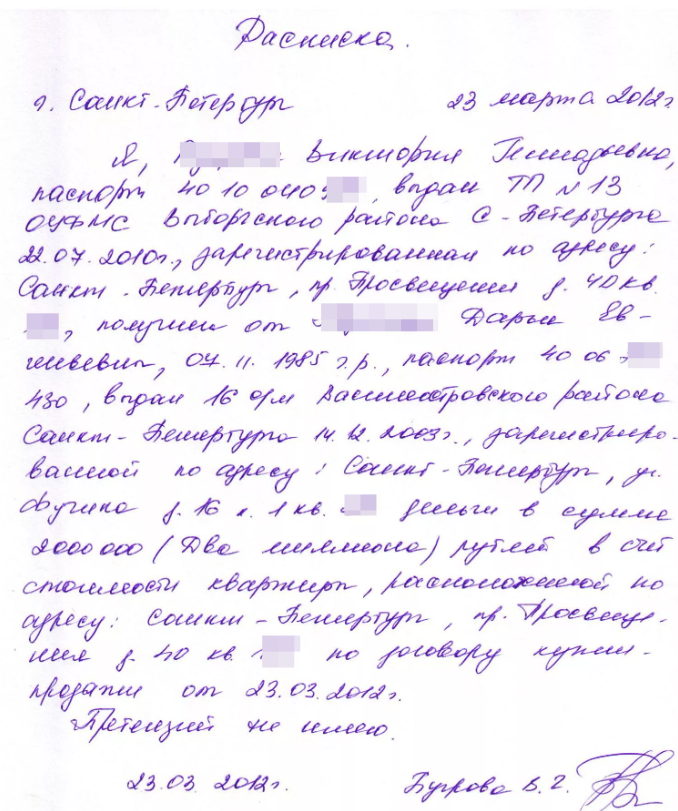 Расписка.
г. Санкт-Петербург 23 марта 2012г.
Я, Виктория Геннадьевна,
паспорт 40 10 040, выдан ТП №13
ОУФМС Выборгского района С-Петербурга
22.07.2010г., зарегистрированная по адресу:
Санкт-Петербург, пр. Просвещения д. 40 кв.
, получила от Дарьи Ев-
геньевны, 04.11.1985 г.р., паспорт 40 06
430, выдан 16 о/м Василеостровского района
Санкт-Петербурга, зарегистриро-
ванной по адресу: Санкт-Петербург, ул.
д. 16 к. 1 кв. деньги в сумме
2000 000 (Два миллиона) рублей в счёт
стоимости квартиры, расположенной по
адресу: Санкт-Петербург, пр. Просвеще-
ния д. 40 кв. по договору купли-
продажи от 23.03.2012г.
Претензий не имею.
23.03.2012г. Бугрова В. Г.